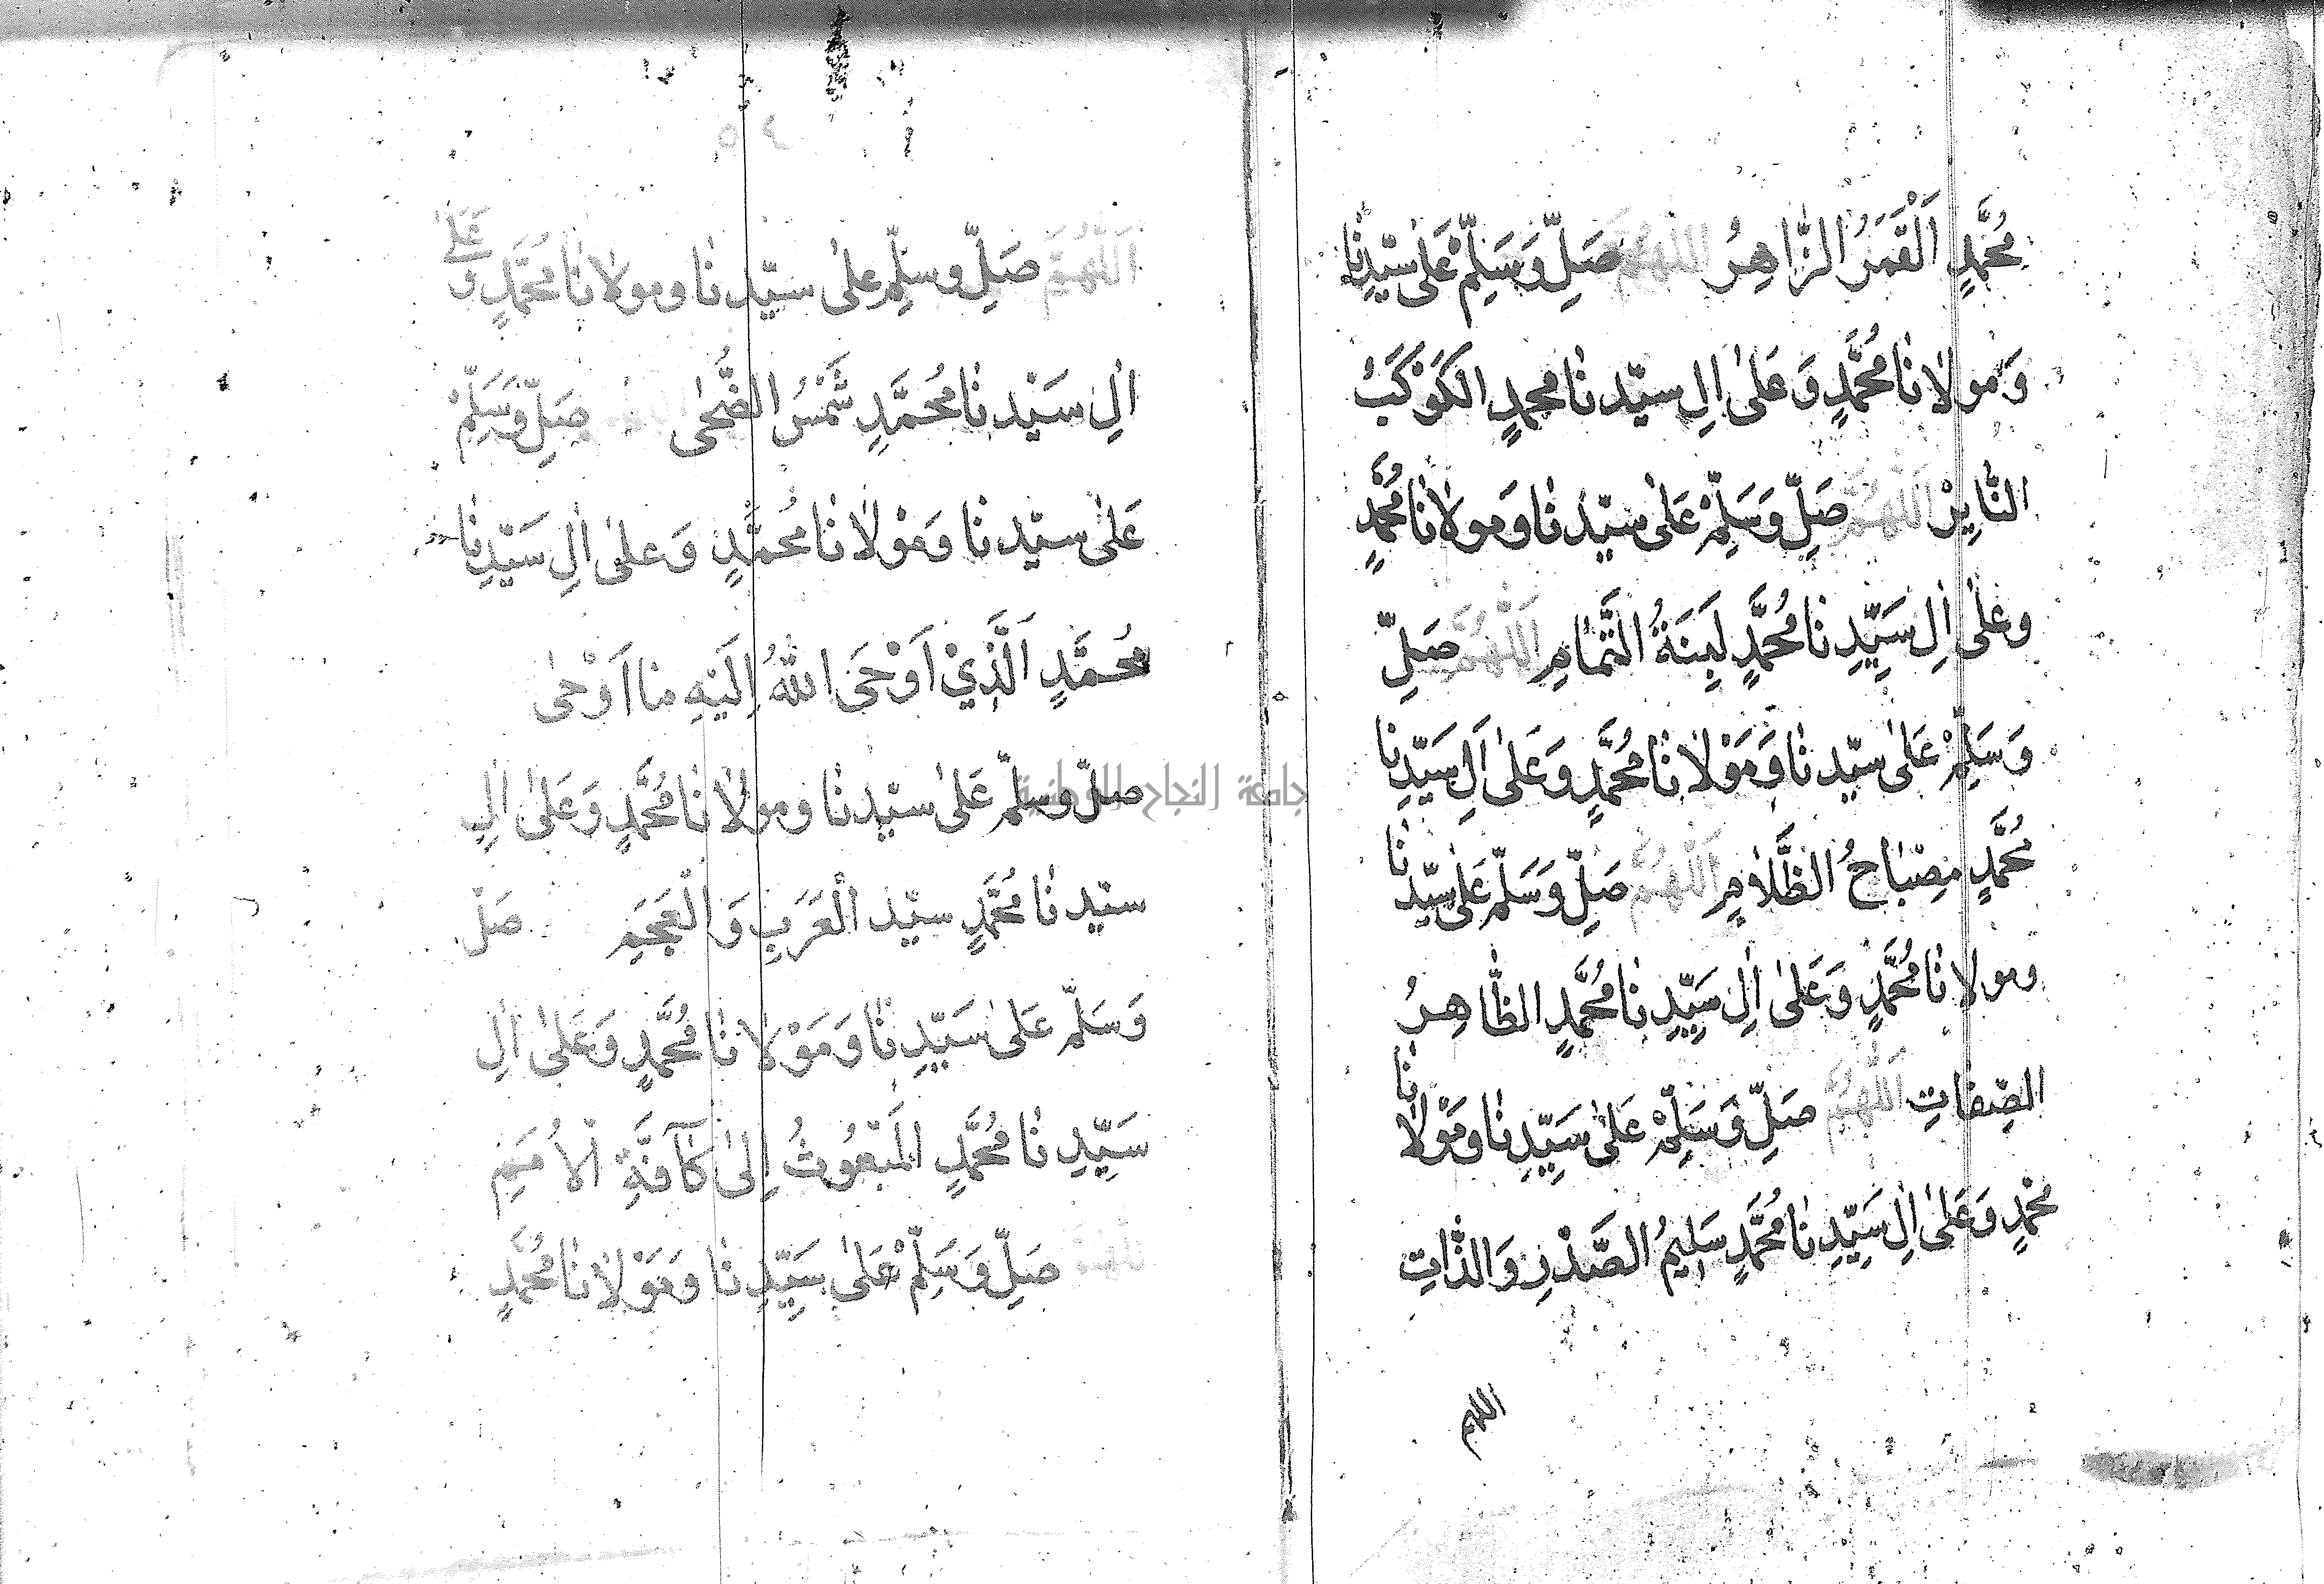 مُحَمَّدٍ اَلْقَمَرُ الزَّاهِرُ اَللّٰهُمَّ صَلِّ وَسَلِّمْ عَلٰى سَيِّدِنَا
وَمولانا مُحَمَّدٍ وَعَلىٰ اٰلِ سيّدنا محمدٍ الكَوْكَبُ
النَّايِرْ اَللّٰهُمَّ صَلِّ وَسَلِّمْ عَلىٰ سيّدنا وَمولانا مُحَمَّدٍ
وعَلىٰ اٰلِ سَيِّدِنا مُحَمَّدٍ لَبِنَةُ التَّمامِ اَللّٰهُمَّ صَلِّ
وَسَلِّمْ عَلىٰ سيّدنا وَمَوْلانا مُحَمَّدٍ وَعَلىٰ اٰلِ سَيِّدِنا
مُحَمَّدٍ مِصْبَاحُ الظَّلامِ اَللّٰهُمَّ صَلِّ وَسَلِّمْ عَلىٰ سيّدنا
ومولانا مُحَمَّدٍ وَعَلىٰ اٰلِ سَيِّدِنا مُحَمَّدٍ الطَّاهِرُ
الصِّفاتِ اَللّٰهُمَّ صَلِّ وَسَلِّمْ عَلىٰ سَيِّدِنا ومَوْلانا
محمّدٍ وَعَلىٰ اٰلِ سَيِّدِنا مُحَمَّدٍ سَلِيمُ الصَّدْرِ وَالذَّاتِ
اللهم
٥٤
اَللّٰهُمَّ صَلِّ وسلِّم على سيّدنا ومولانا مُحَمَّدٍ وعَلىٰ
اٰلِ سَيّدنا مُحَمَّدٍ شَمْسُ الضُّحٰى صَلِّ وَسَلِّمْ
عَلىٰ سيّدنا وَمَوْلانا مُحمَّدٍ وَعلىٰ اٰلِ سَيِّدِنا
مُحَمَّدٍ اَلَّذِيْ اَوْحَى اللّٰهُ اِلَيْهِ مَا اَوْحٰى
صلّ وسلّم عَلىٰ سيّدنا ومولانا مُحَمَّدٍ وَعَلىٰ اٰلِ
سيّدنا مُحَمَّدٍ سيّد العَرَبِ وَالْعَجَمِ صَلّ
وَسَلّم عَلىٰ سَيِّدِنا وَمَوْلانا مُحَمَّدٍ وَعَلىٰ اٰلِ
سَيِّدِنا مُحَمَّدٍ المَبْعُوثُ اِلىٰ كَآفَّةِ الاُمَمِ
اللهم صَلِّ وَسَلِّمْ عَلىٰ سَيِّدِنا وَمَوْلانا مُحَمَّدٍ
جامعة النجاح الوطنية